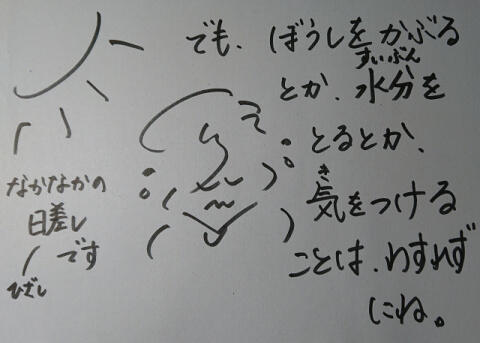 でも、ぼうしをかぶる
すいぶん
とか、水分を
とるとか、
き
気をつける
ことは、わすれず
にね。
なかなかの
日差し
です
ひざし